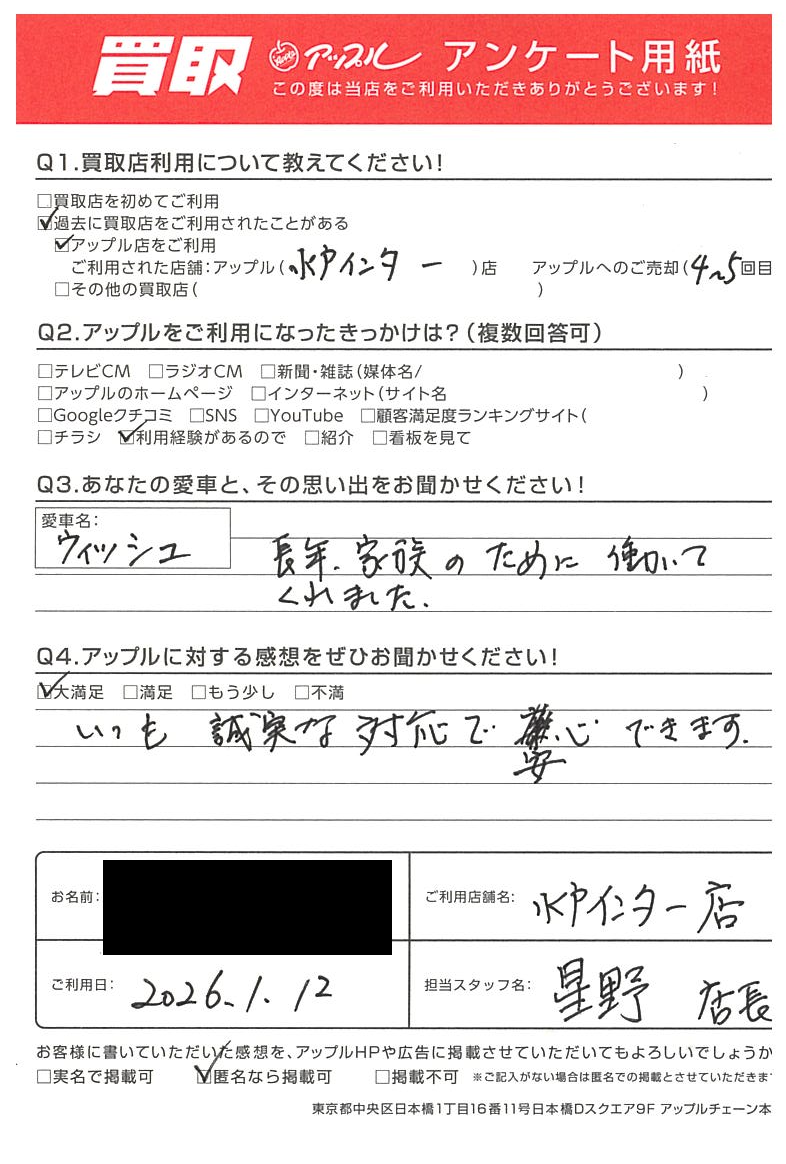 買取 アップル アンケート用紙
この度は当店をご利用いただきありがとうございます!
Q1.買取店利用について教えてください!
□買取店を初めてご利用
☑過去に買取店をご利用されたことがある
☑アップル店をご利用
ご利用された店舗:アップル(水戸インター)店 アップルへのご売却(4~5回目
□その他の買取店( )
Q2.アップルをご利用になったきっかけは?(複数回答可)
□テレビCM □ラジオCM □新聞・雑誌(媒体名/ )
□アップルのホームページ □インターネット(サイト名 )
□Googleクチコミ □SNS □YouTube □顧客満足度ランキングサイト(
□チラシ ☑利用経験があるので □紹介 □看板を見て
Q3.あなたの愛車と、その思い出をお聞かせください!
愛車名:
ウィッシュ 長年、家族のために働いて
くれました.
Q4.アップルに対する感想をぜひお聞かせください!
☑大満足 □満足 □もう少し □不満
いつも誠実な対応で 心できます.
安
お名前: ご利用店舗名: 水戸インター店
ご利用日: 2026.1.12 担当スタッフ名: 星野 店長
お客様に書いていただいた感想を、アップルHPや広告に掲載させていただいてもよろしいでしょうか
□実名で掲載可 ☑匿名なら掲載可 □掲載不可 ※ご記入がない場合は匿名での掲載とさせていただきま
東京都中央区日本橋1丁目16番11号日本橋Dスクエア9F アップルチェーン本